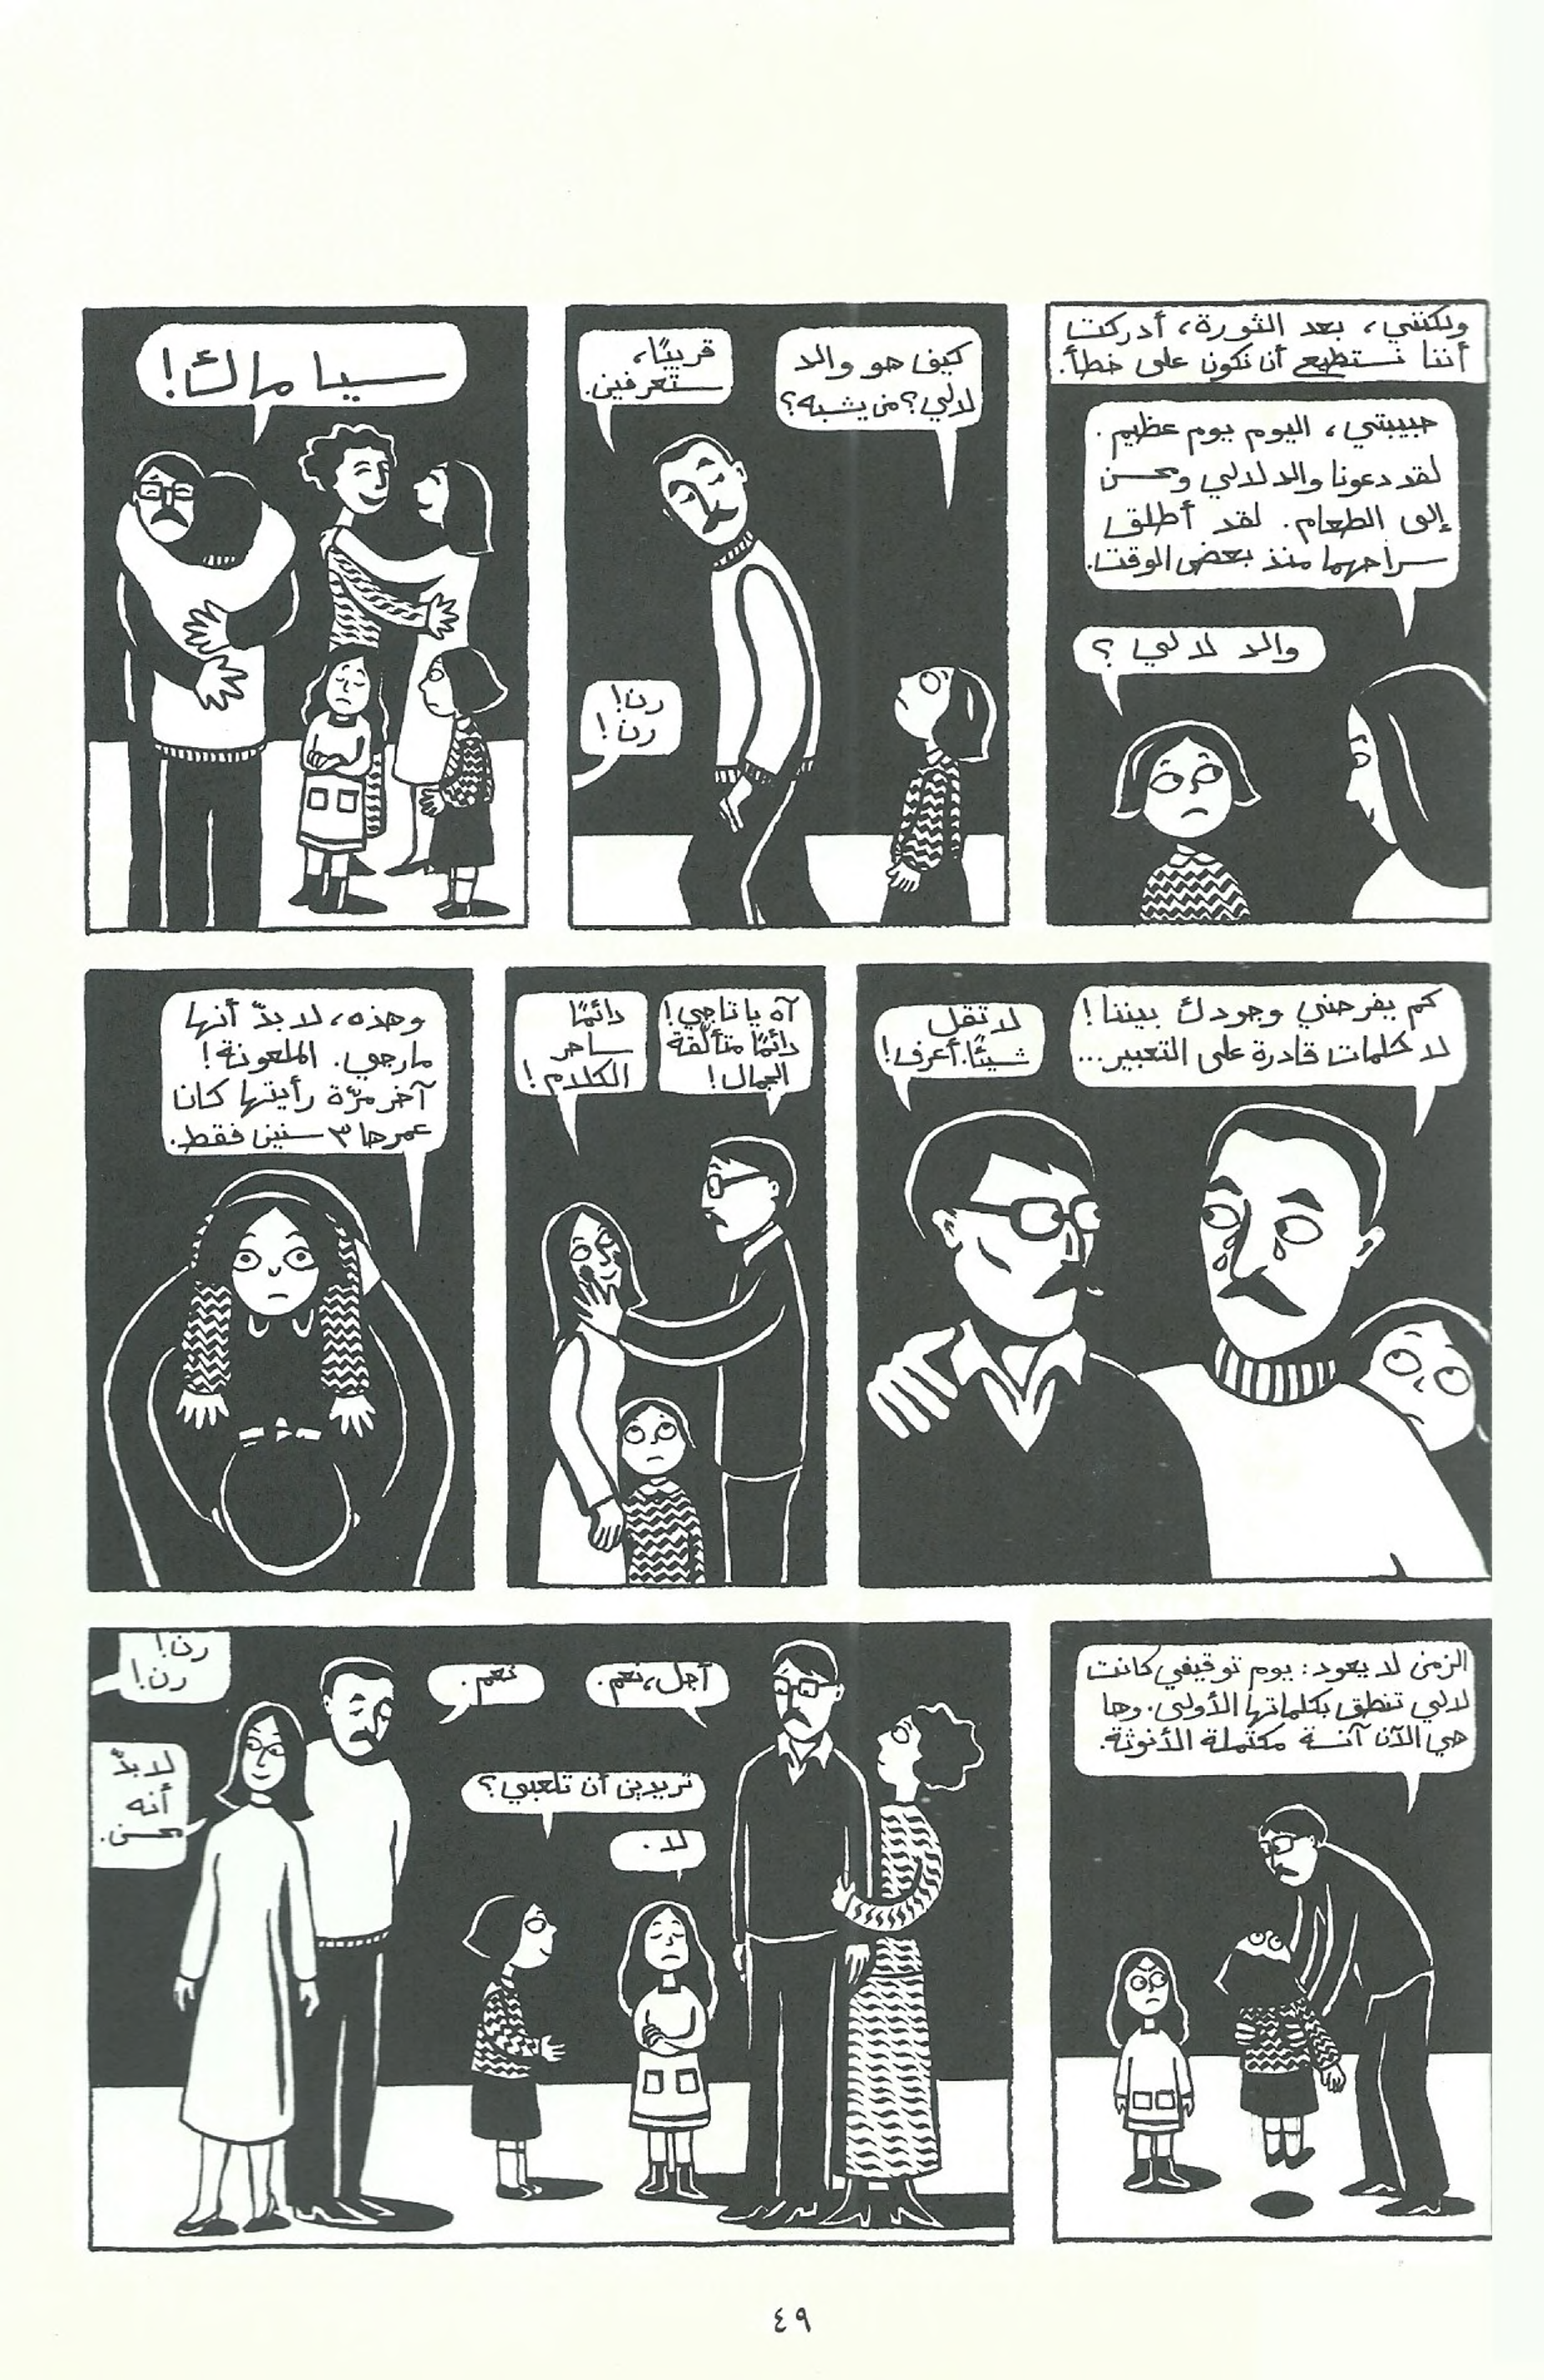 ولكنني، بعد الثورة، أدركت
أننا نستطيع أن نكون على خطأ.
حبيبتي، اليوم يوم عظيم.
لقد دعونا والد لالي ومحسن
إلى الطعام. لقد أطلق
سراحهما منذ بعض الوقت.
والد لالي؟
كيف هو والد
لالي؟ من يشبه؟
قريبًا،
ستعرفين.
رن!
رن!
سياماك!
كم يفرحني وجودك بيننا!
لا كلمات قادرة على التعبير...
لا تقل
شيئًا. أعرف!
آه يا تاجي!
دائمًا متألّقة
الجمال!
دائمًا
ساحر
الكلام!
وهذه، لا بدّ أنها
مارجي. الملعونة!
آخر مرّة رأيتها كان
عمرها ٣ سنين فقط.
الزمن لا يعود: يوم توقيفي كانت
لالي تنطق بكلماتها الأولى. وها
هي الآن آنسة مكتملة الأنوثة.
أجل، نعم.
نعم.
تريدين أن تلعبي؟
لا.
رن!
رن!
لا بدّ
أنه
محسن.
٤٩